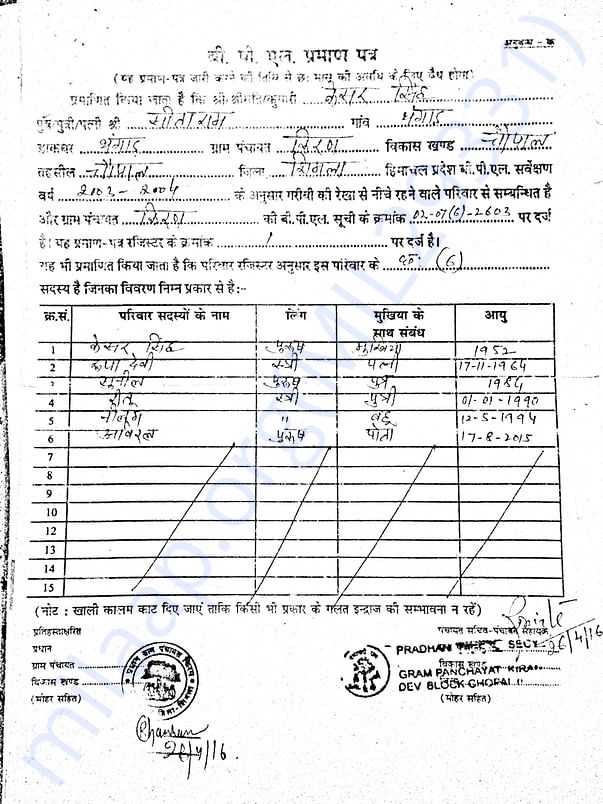 अनुबन्ध - क
बी. पी. एल. प्रमाण पत्र
(यह प्रमाण-पत्र जारी करने की तिथि से छः मास की अवधि के लिए वैध होगा)
प्रमाणित किया जाता है कि श्री/श्रीमति/कुमारी केसर सिंह
पुत्र/पुत्री/पत्नी श्री सीताराम गांव भंगाड़
डाकघर भंगाड़ ग्राम पंचायत किरण विकास खण्ड चौपाल
तहसील चौपाल जिला शिमला हिमाचल प्रदेश बी.पी.एल. सर्वेक्षण
वर्ष 2003-2004 के अनुसार गरीबी की रेखा से नीचे रहने वाले परिवार से सम्बन्धित है
और ग्राम पंचायत किरण की बी.पी.एल. सूची के क्रमांक 02-07(6)-2603 पर दर्ज
है। यह प्रमाण-पत्र रजिस्टर के क्रमांक 1 पर दर्ज है।
यह भी प्रमाणित किया जाता है कि परिवार रजिस्टर अनुसार इस परिवार के छः (6)
सदस्य है जिनका विवरण निम्न प्रकार से है:-
क्र.सं. परिवार सदस्यों के नाम लिंग मुखिया के साथ संबंध आयु
1 केसर सिंह पुरुष मुखिया 1952
2 कपा देवी स्त्री पत्नी 17-11-1964
3 सुनील पुरुष पुत्र 1984
4 रीतू स्त्री पुत्री 01-01-1990
5 नीलम " बहू 12-5-1994
6 अविरल पुरुष पोता 17-8-2015
7
8
9
10
11
12
13
14
15
(नोट : खाली कालम काट दिए जाएं ताकि किसी भी प्रकार के गलत इन्द्राज की सम्भावना न रहें)
प्रतिहस्ताक्षरित
प्रधान
ग्राम पंचायत
विकास खण्ड
(मोहर सहित)
28/4/16
पंचायत सचिव-पंचायत सहायक
26/4/16
PRADHAN SECY
विकास खण्ड
GRAM PANCHAYAT KIRAN
DEV BLOCK CHOPAL
(मोहर सहित)
milaap.org